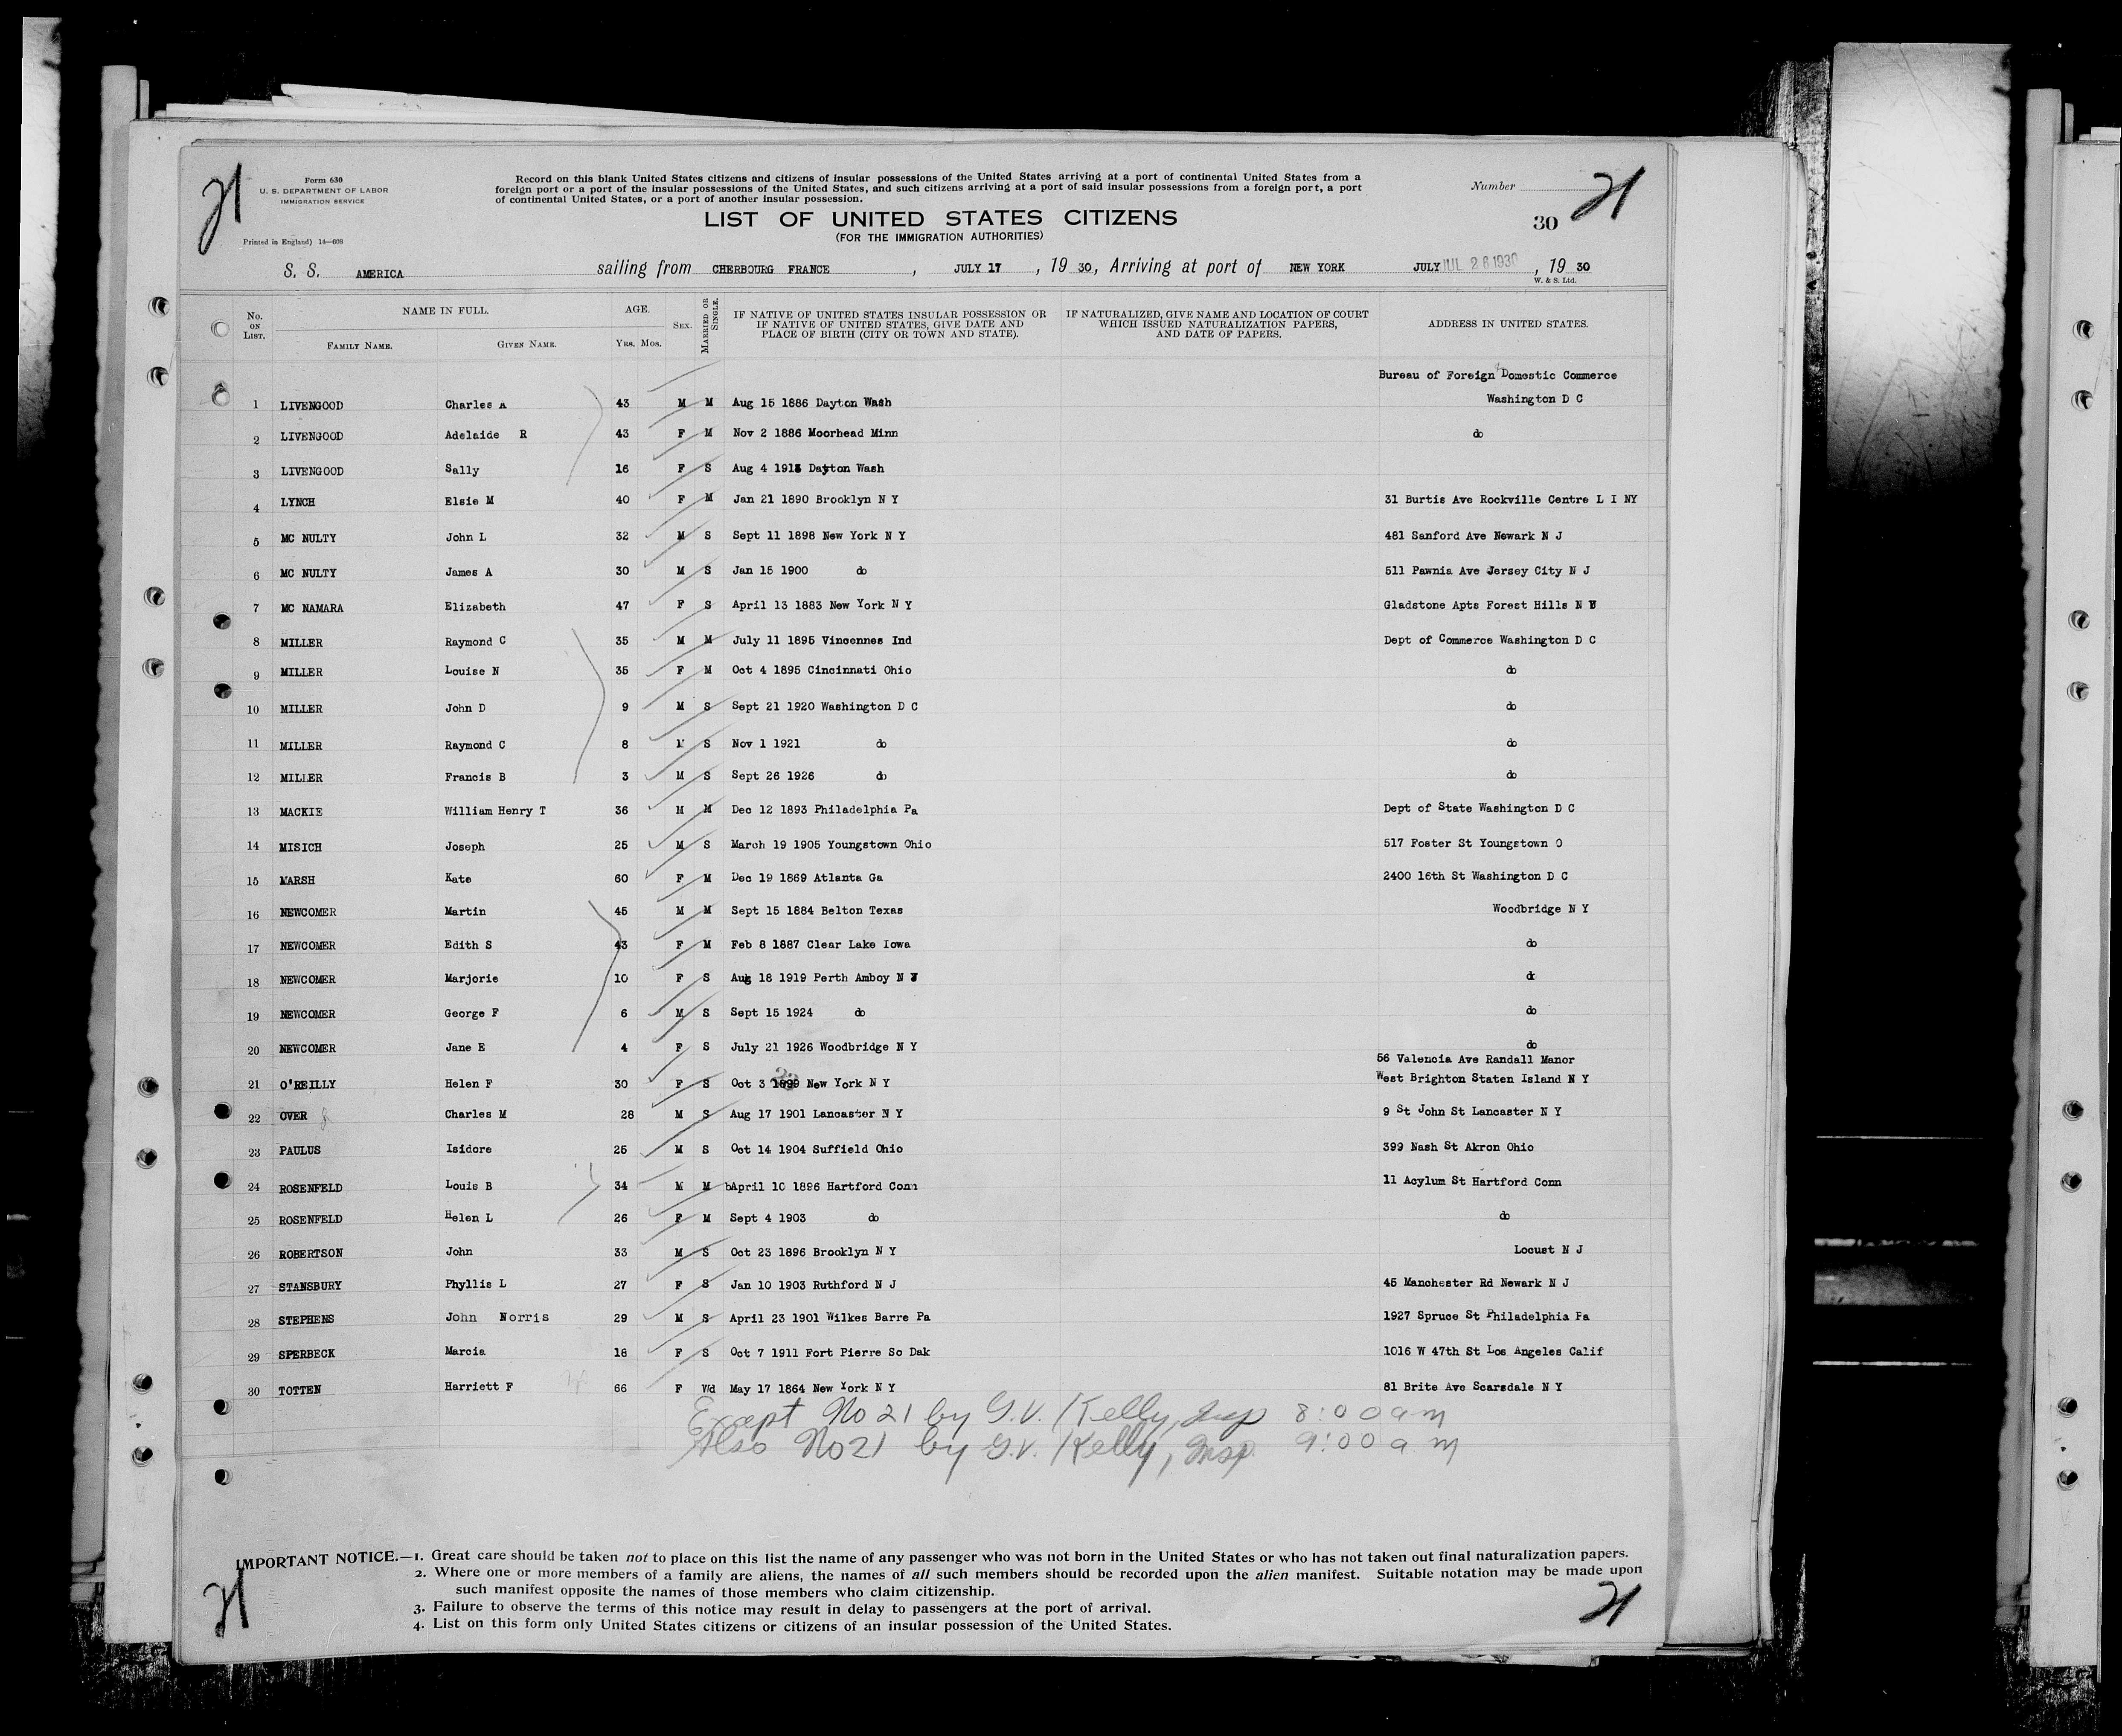 21
Form 630
U. S. DEPARTMENT OF LABOR
IMMIGRATION SERVICE
Printed in England) 14—608
Record on this blank United States citizens and citizens of insular possessions of the United States arriving at a port of continental United States from a
foreign port or a port of the insular possessions of the United States, and such citizens arriving at a port of said insular possessions from a foreign port, a port
of continental United States, or a port of another insular possession.
Number
21
LIST OF UNITED STATES CITIZENS
30
(FOR THE IMMIGRATION AUTHORITIES)
S. S. AMERICA sailing from CHERBOURG FRANCE, JULY 17, 19 30, Arriving at port of NEW YORK JULY JUL 26 1930, 19 30
W. & S. Ltd.
No. ON LIST. NAME IN FULL. FAMILY NAME. GIVEN NAME. AGE. YRS. MOS. SEX. MARRIED OR SINGLE. IF NATIVE OF UNITED STATES INSULAR POSSESSION OR IF NATIVE OF UNITED STATES, GIVE DATE AND PLACE OF BIRTH (CITY OR TOWN AND STATE). IF NATURALIZED, GIVE NAME AND LOCATION OF COURT WHICH ISSUED NATURALIZATION PAPERS, AND DATE OF PAPERS. ADDRESS IN UNITED STATES.
Bureau of Foreign Domestic Commerce
1 LIVENGOOD Charles A 43 M M Aug 15 1886 Dayton Wash Washington D C
2 LIVENGOOD Adelaide R 43 F M Nov 2 1886 Moorhead Minn do
3 LIVENGOOD Sally 16 F S Aug 4 1913 Dayton Wash
4 LYNCH Elsie M 40 F M Jan 21 1890 Brooklyn N Y 31 Burtis Ave Rockville Centre L I NY
5 MC NULTY John L 32 M S Sept 11 1898 New York N Y 481 Sanford Ave Newark N J
6 MC NULTY James A 30 M S Jan 15 1900 do 511 Pawnia Ave Jersey City N J
7 MC NAMARA Elizabeth 47 F S April 13 1883 New York N Y Gladstone Apts Forest Hills N Y
8 MILLER Raymond C 35 M M July 11 1895 Vincennes Ind Dept of Commerce Washington D C
9 MILLER Louise N 35 F M Oct 4 1895 Cincinnati Ohio do
10 MILLER John D 9 M S Sept 21 1920 Washington D C do
11 MILLER Raymond C 8 M S Nov 1 1921 do do
12 MILLER Francis B 3 M S Sept 26 1926 do do
13 MACKIE William Henry T 36 M M Dec 12 1893 Philadelphia Pa Dept of State Washington D C
14 MISICH Joseph 25 M S March 19 1905 Youngstown Ohio 517 Foster St Youngstown O
15 MARSH Kate 60 F M Dec 19 1869 Atlanta Ga 2400 16th St Washington D C
16 NEWCOMER Martin 45 M M Sept 15 1884 Belton Texas Woodbridge N Y
17 NEWCOMER Edith S 43 F M Feb 8 1887 Clear Lake Iowa do
18 NEWCOMER Marjorie 10 F S Aug 18 1919 Perth Amboy N J do
19 NEWCOMER George F 6 M S Sept 15 1924 do do
20 NEWCOMER Jane E 4 F S July 21 1926 Woodbridge N Y do
56 Valencia Ave Randall Manor
21 O'REILLY Helen F 30 F S Oct 3 1899 New York N Y West Brighton Staten Island N Y
22 OVER Charles M 28 M S Aug 17 1901 Lancaster N Y 9 St John St Lancaster N Y
23 PAULUS Isidore 25 M S Oct 14 1904 Suffield Ohio 399 Nash St Akron Ohio
24 ROSENFELD Louis B 34 M M bApril 10 1896 Hartford Conn 11 Acylum St Hartford Conn
25 ROSENFELD Helen L 26 F M Sept 4 1903 do do
26 ROBERTSON John 33 M S Oct 23 1896 Brooklyn N Y Locust N J
27 STANSBURY Phyllis L 27 F S Jan 10 1903 Ruthford N J 45 Manchester Rd Newark N J
28 STEPHENS John Norris 29 M S April 23 1901 Wilkes Barre Pa 1927 Spruce St Philadelphia Pa
29 SPERBECK Marcia 18 F S Oct 7 1911 Fort Pierre So Dak 1016 W 47th St Los Angeles Calif
30 TOTTEN Harriett F 66 F Wd May 17 1864 New York N Y 81 Brite Ave Scarsdale N Y
Except No 21 by G.V. Kelly, Insp 8:00 am
Also No 21 by G.V. Kelly, Insp. 9:00 a m
IMPORTANT NOTICE.—1. Great care should be taken not to place on this list the name of any passenger who was not born in the United States or who has not taken out final naturalization papers.
2. Where one or more members of a family are aliens, the names of all such members should be recorded upon the alien manifest. Suitable notation may be made upon
such manifest opposite the names of those members who claim citizenship.
3. Failure to observe the terms of this notice may result in delay to passengers at the port of arrival.
4. List on this form only United States citizens or citizens of an insular possession of the United States.
21
21